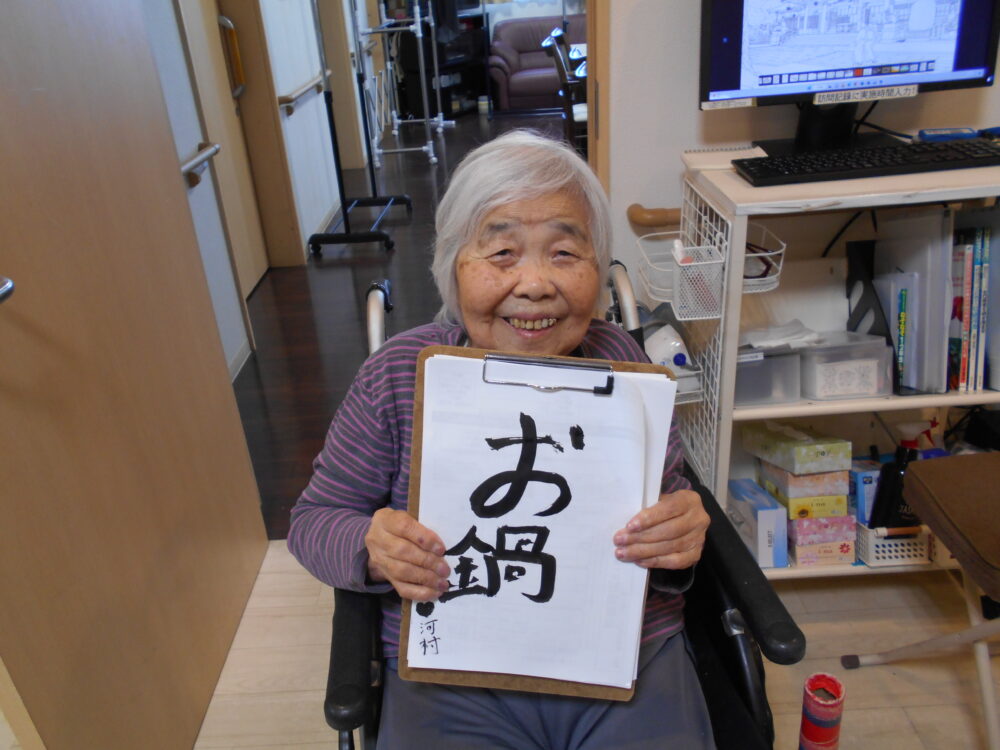 お
鍋
河村
訪問記録に実施時間入力!